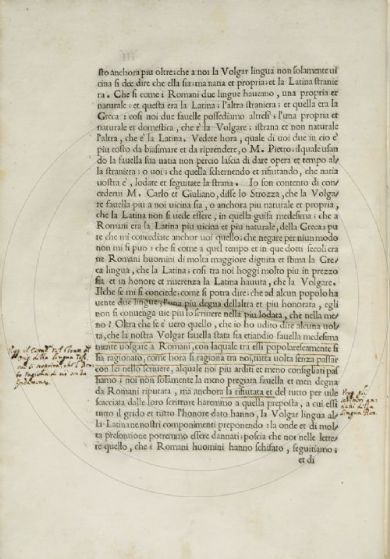 sto anchora piu oltre: che a noi la Volgar lingua non solamente ui
cina si dee dire che ella sia: ma natia et propria: et la Latina stranie
ra. Che si come i Romani due lingue haueano, una propria et
naturale: et questa era la Latina: l'altra straniera: et quella era la
Greca: cosi noi due fauelle possediamo altresi: l'una propria et
naturale et domestica, che è la Volgare: strana et non naturale
l'altra, che è la Latina. Vedete hora, quale di uoi due in ciò e'
piu tosto da biasimare et da riprendere, o M. Pietro: il quale usan
do la fauella sua natia non perciò lascia di dare opera et tempo al/
la straniera: o uoi: che quella schernendo et rifiutando, che natia
uostra è, lodate et seguitate la strana. Io son contento di con
cederui M. Carlo et Giuliano, disse lo Strozza, che la Volga
re fauella piu a noi uicina sia, o anchora piu naturale et propria,
che la Latina non si uede essere, in quella guisa medesima: che a
Romani era la Latina piu uicina et piu naturale, della Greca: pu
re che mi concediate anchor uoi quello: che negare per niun modo
non mi si puo: che si come a quel tempo et in que dotti secoli era
ne Romani huomini di molta maggiore dignita et stima la Gre
ca lingua, che la Latina: cosi tra noi hoggi molto piu in prezzo
sia et in honore et riuerenza la Latina hauuta, che la Volgare.
Ilche se mi si concede: come si potra dire: che ad alcun popolo ha
uente due lingue, l'una piu degna dell'altra et piu honorata, egli
non si conuenga uie piu lo scriuere nella piu lodata, che nella me
no? Oltra che se è uero quello, che io ho udito dire alcuna uol/
ta, che la nostra Volgar fauella stata sia etiandio fauella medesima
mente uolgare a Romani, con laquale tra essi popolarescamente si
sia ragionato, come hora si ragiona tra noi, tutta uolta senza passar
con lei nello scriuere, alquale noi piu arditi et meno consigliati pas
siamo: noi non solamente la meno pregiata fauella et men degna
da Romani riputata, ma anchora la rifiutata et del tutto per uile
scacciata dalle loro scritture haremmo a quella preposta, a cui essi
tutto il grido et tutto l'honore dato hanno, la Volgar lingua al/
la Latina ne nostri componimenti preponendo: la onde et di mol
ta presontione potremmo essere dannati: poscia che noi nelle lette/
re quello, che i Romani huomini hanno schifato, seguitiamo:
et di